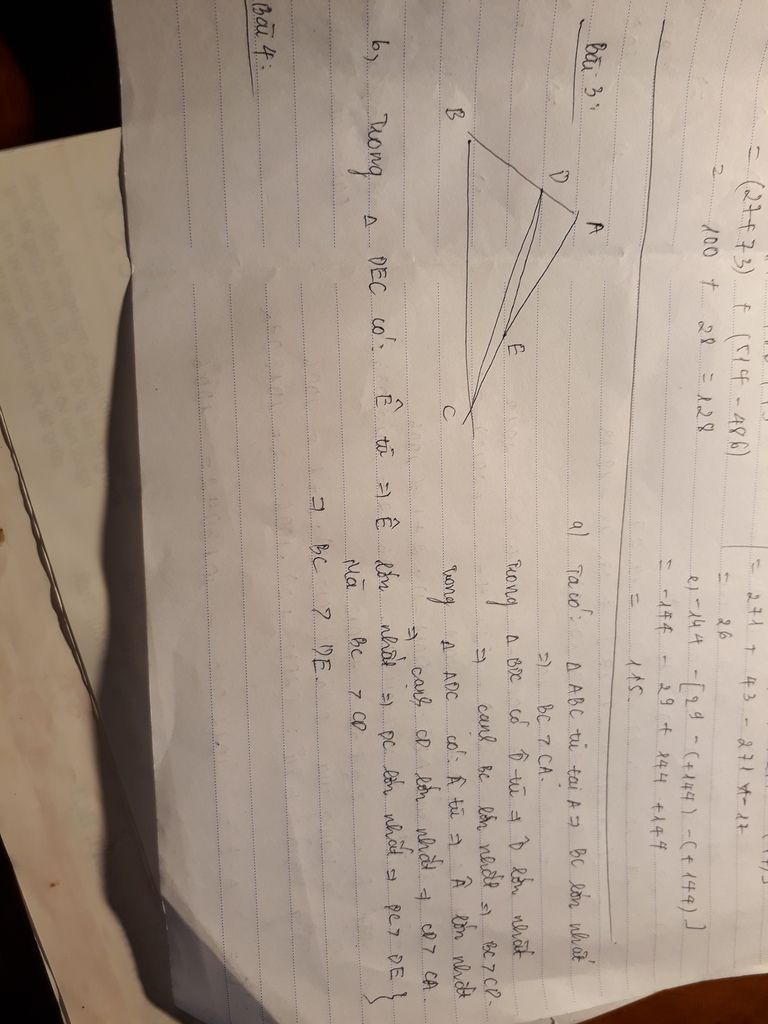 = (27+73) + (514 - 486)
= 100 + 28 = 128
= 271 + 43 - 271
= 26
e, -144 - [29 - (+144) - (+144)]
= -144 - 29 + 144 + 144
= 115.
Bài 3:
A
D
B
E
C
a) Ta có: Δ ABC tù tại A => BC lớn nhất
=> BC > CA.
Trong Δ BDC có D̂ tù => D̂ lớn nhất
=> cạnh BC lớn nhất => BC > CD.
Trong Δ ADC có: Â tù => Â lớn nhất
=> cạnh CD lớn nhất => CD > CA.
b, Trong Δ DEC có: Ê tù => Ê lớn nhất => DC lớn nhất => DC > DE }
Mà BC > CD
=> BC > DE.
Bài 4: